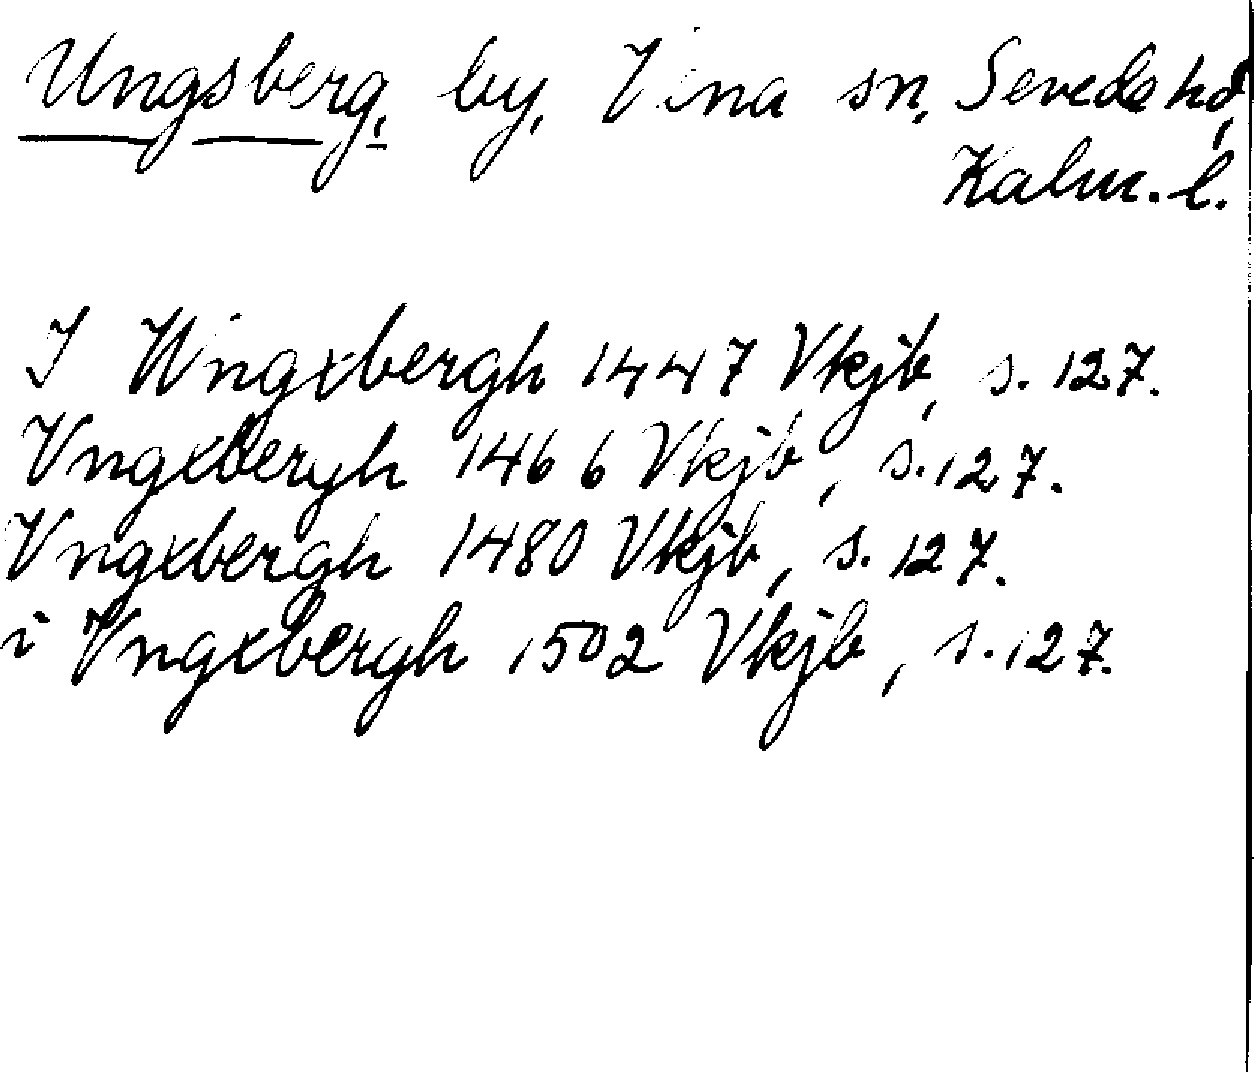 Ungsberg, by, Vena sn, Sevede hd,
Kalm. l.
I Wngxbergh 1447 Vkjb, s. 127.
Vngxbergh 1466 Vkjb, s. 127.
Vngxbergh 1480 Vkjb, s. 127.
i Vngxbergh 1502 Vkjb, s. 127.